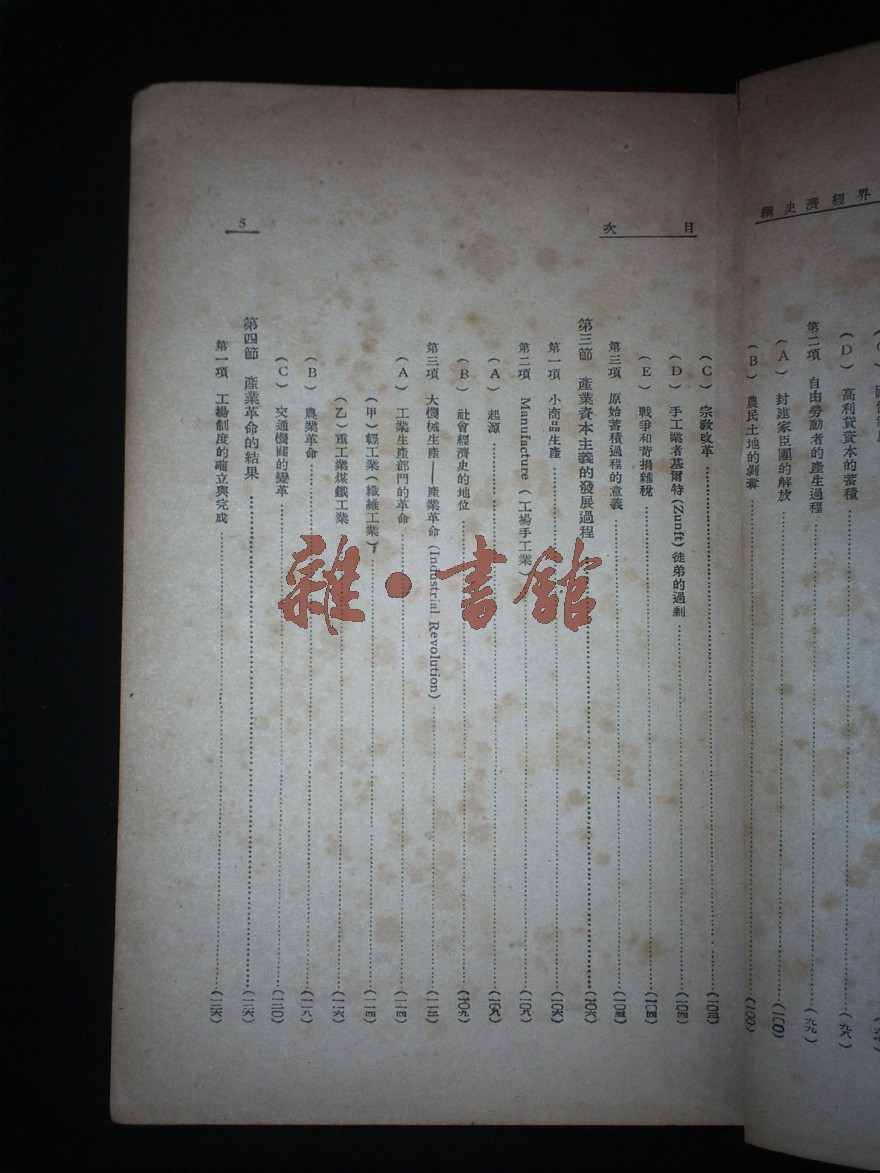 界經濟史綱
(D) 高利貸資本的蓄積……(九八)
第二項 自由勞動者的產生過程……(九九)
(A) 封建家臣團的解放……(100)
(B) 農民土地的剝奪……(100)
目次
5
(C) 宗教改革……(10三)
(D) 手工業者基爾特(Zunft)徒弟的過剩……(10四)
(E) 戰爭和苛捐雜稅……(10四)
第三項 原始蓄積過程的意義……(10五)
第三節 產業資本主義的發展過程……(10六)
第一項 小商品生產……(10六)
第二項 Manufacture(工場手工業)……(10八)
(A) 起源……(10八)
(B) 社會經濟史的地位……(10九)
第三項 大機械生產——產業革命(Industrial Revolution)……(一一三)
(A) 工業生產部門的革命……(一一四)
(甲)輕工業(纖維工業)……(一一四)
(乙)重工業煤鐵工業……(一一六)
(B) 農業革命……(一一八)
(C) 交通機關的變革……(一二0)
第四節 產業革命的結果……(一二六)
第一項 工場制度的確立與完成……(一二六)
雜·書館